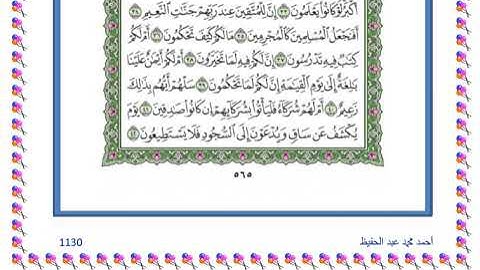 أَكْبَرُ لَوْ كَانُوا يَعْلَمُونَ ٣٣ إِنَّ لِلْمُتَّقِينَ عِندَ رَبِّهِمْ جَنَّٰتِ ٱلنَّعِيمِ ٣٤
أَفَنَجْعَلُ ٱلْمُسْلِمِينَ كَٱلْمُجْرِمِينَ ٣٥ مَا لَكُمْ كَيْفَ تَحْكُمُونَ ٣٦ أَمْ لَكُمْ
كِتَٰبٌ فِيهِ تَدْرُسُونَ ٣٧ إِنَّ لَكُمْ فِيهِ لَمَا تَخَيَّرُونَ ٣٨ أَمْ لَكُمْ أَيْمَٰنٌ عَلَيْنَا
بَٰلِغَةٌ إِلَىٰ يَوْمِ ٱلْقِيَٰمَةِ إِنَّ لَكُمْ لَمَا تَحْكُمُونَ ٣٩ سَلْهُمْ أَيُّهُم بِذَٰلِكَ
زَعِيمٌ ٤٠ أَمْ لَهُمْ شُرَكَآءُ فَلْيَأْتُوا بِشُرَكَآئِهِمْ إِن كَانُوا صَٰدِقِينَ ٤١ يَوْمَ
يُكْشَفُ عَن سَاقٍ وَيُدْعَوْنَ إِلَى ٱلسُّجُودِ فَلَا يَسْتَطِيعُونَ ٤٢
٥٦٥
أحمد محمد عبد الحفيظ
1130